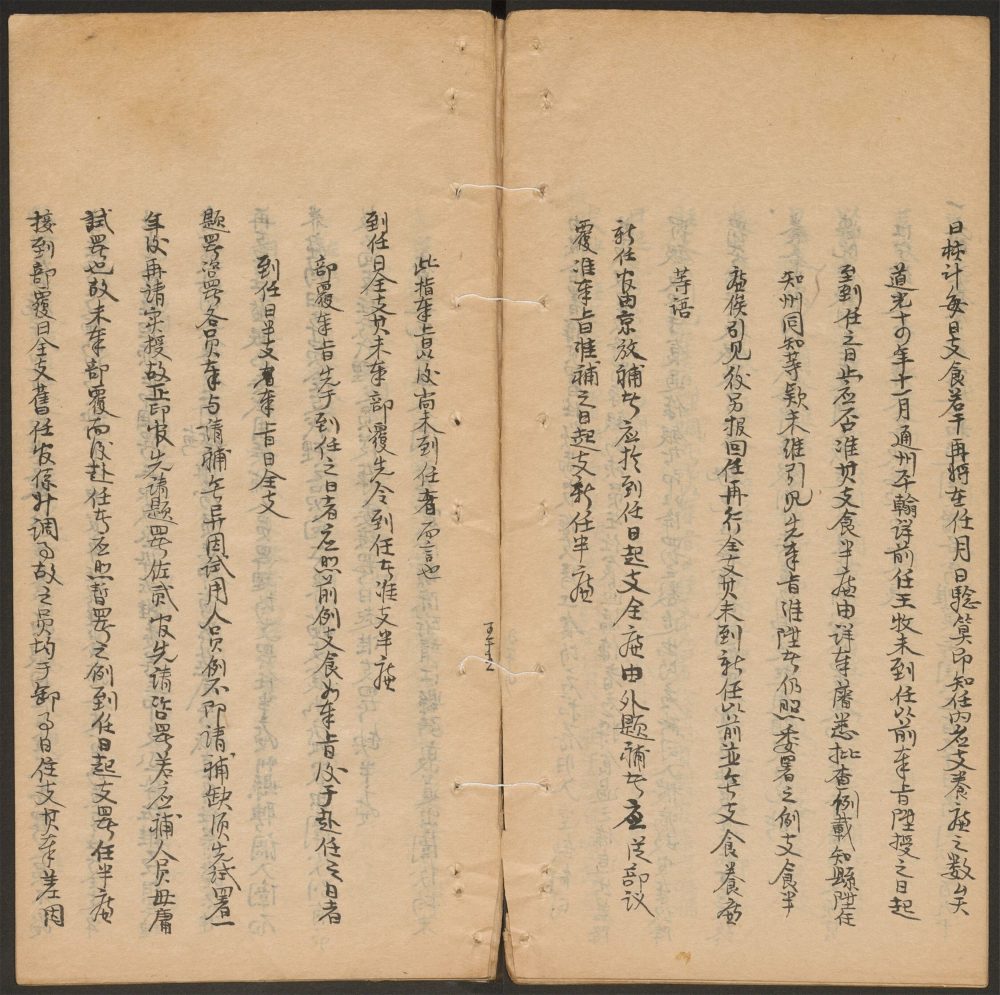 日核計每日支食若干再將在任月日驗算即知任內應支養廉之數矣
道光十四年十一月通州平翰詳前任王牧未到任以前奉旨陞授之日起
至到任之日止應否准其支食半廉由詳奉藩憲批查例載知縣陞任
知州同知等款未經引見先奉旨准陞者仍照委署之例支食半
廉俟引見後另報回任再行全支其未到新任以前並無支食養廉
等語
新任官由京放補者應於到任日起支全廉由外題補者應從部議
覆准奉旨准補之日起支新任半廉
此指奉旨以後尚未到任者而言也
到任日全支其未奉部覆先令到任者准支半廉
部覆奉旨先于到任之日者應照前例支食如奉旨後于赴任之日者
到任日半支者奉旨日全支
題署咨署各員本與請補無異因試用人員例不即請補缺須先試署一
年後再請實授故正印官先請題署佐貳官先請咨署若應補人員毋庸
試署也故未奉部覆而後赴任者應照暫署之例到任日起支署任半廉
接到部覆日全支舊任官係升調事故之員均于卸事日住支其奉差因